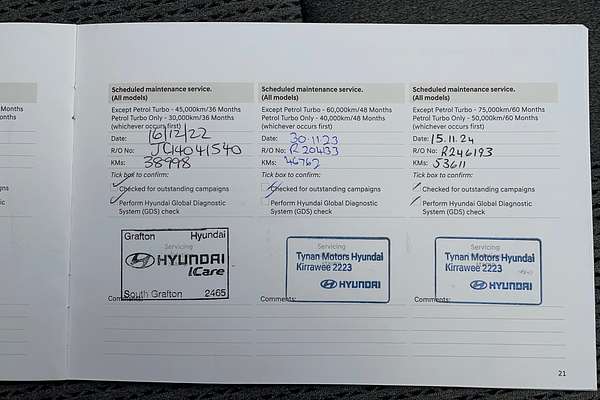 Months
Months
Scheduled maintenance service.
(All models)
Except Petrol Turbo - 45,000km/36 Months
Petrol Turbo Only - 30,000km/36 Months
(whichever occurs first)
Date: 16/12/22
R/O No: JC14041540
KMs: 38998
Tick box to confirm:
Checked for outstanding campaigns
Perform Hyundai Global Diagnostic
System (GDS) check
Grafton Hyundai
Servicing
HYUNDAI
iCare
South Grafton 2465
Comments:
Scheduled maintenance service.
(All models)
Except Petrol Turbo - 60,000km/48 Months
Petrol Turbo Only - 40,000km/48 Months
(whichever occurs first)
Date: 30.11.23
R/O No: R204133
KMs: 46762
Tick box to confirm:
Checked for outstanding campaigns
Perform Hyundai Global Diagnostic
System (GDS) check
Servicing
Tynan Motors Hyundai
Kirrawee 2223
HYUNDAI
Comments:
Scheduled maintenance service.
(All models)
Except Petrol Turbo - 75,000km/60 Months
Petrol Turbo Only - 50,000km/60 Months
(whichever occurs first)
Date: 15.11.24
R/O No: R246193
KMs: 53611
Tick box to confirm:
Checked for outstanding campaigns
Perform Hyundai Global Diagnostic
System (GDS) check
Servicing
Tynan Motors Hyundai
Kirrawee 2223
HYUNDAI
Comments:
21